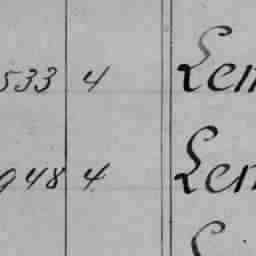 533 4 Lem
948 4 Lem